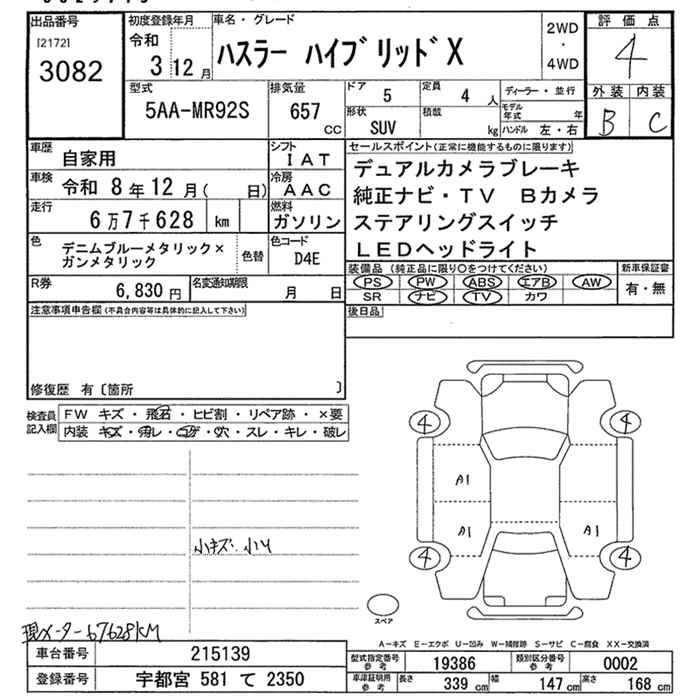 出品番号
[21721
3082
初度登録年月
令和
3 12月
車名・グレード
ハスラー ハイブリッドX
2WD
・
4WD
評価点
4
外装 内装
B C
型式
5AA-MR92S
排気量
657
CC
ドア
5
定員
4 人
形状
SUV
積載
kg
ディーラー・並行
モデル
年式 年
ハンドル 左・右
車歴
自家用
シフト
IAT
車検
令和 8年12月( 日)
冷房
AAC
走行
6万7千628 km
燃料
ガソリン
色
デニムブルーメタリック×
ガンメタリック
色替
色コード
D4E
R券
6,830 円
名変通知期限
月 日
セールスポイント(正常に機能するものに限ります)
デュアルカメラブレーキ
純正ナビ・TV Bカメラ
ステアリングスイッチ
LEDヘッドライト
装備品(純正品に限り○をつけてください)
PS PW ABS エアB AW
SR ナビ TV カワ
新車保証書
有・無
後日品
注意事項申告欄(不具合内容等は具体的に記入して下さい)
修復歴 有〔箇所 〕
検査員
記入欄
FW キズ・飛石・ヒビ割・リペア跡・×要
内装 キズ・汚レ・コゲ・穴・スレ・キレ・破レ
小キズ・小凹
現メーター67628KM
4
4
A1
A1
A1
4
4
スペア
A-キズ E-エクボ U-凹み W-補修跡 S-サビ C-腐食 XX-交換済
車台番号
215139
登録番号
宇都宮 581 て 2350
型式指定番号
参考
19386
類別区分番号
参考
0002
車庫証明用
参考
長さ
339 cm
幅
147 cm
高さ
168 cm